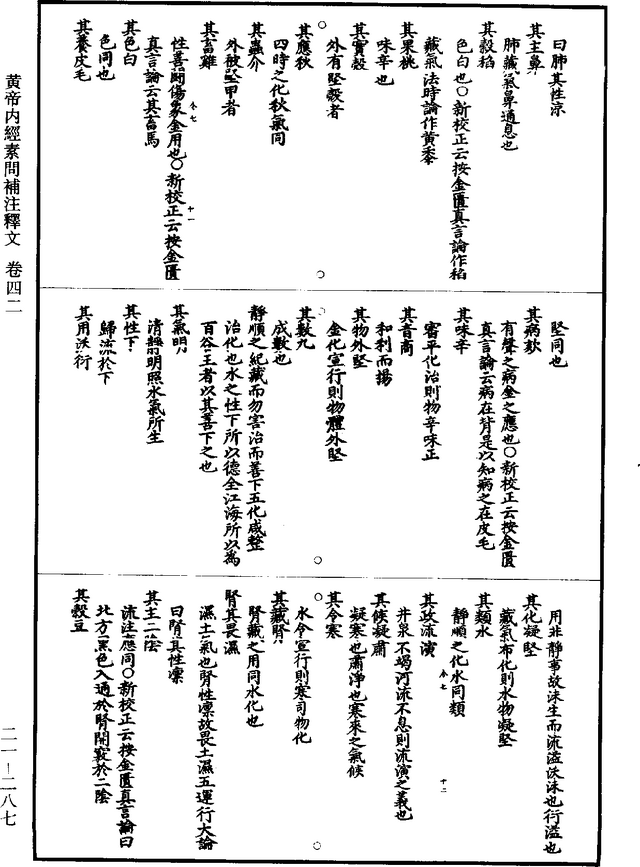 黄帝内經素問補注釋文　卷四二
二一—二八七
曰肺其性涼
其主鼻
肺藏氣鼻通息也
其穀稻
色白也○新校正云按金匱真言論作稻
藏氣法時論作黄黍
其果桃
味辛也
其實殼
外有堅殼者
其應秋
四時之化秋氣同
其蟲介
外被堅甲者
其畜雞
性善鬬傷象金用也○新校正云按金匱
真言論云其畜馬
其色白
色同也
其養皮毛
堅同也
其病欬
有聲之病金之應也○新校正云按金匱
真言論云病在背是以知病之在皮毛
其味辛
審平化治則物辛味正
其音商
和利而揚
其物外堅
金化宣行則物體外堅
其數九
成數也
靜順之紀藏而勿害治而善下五化咸整
治化也水之性下所以德全江海所以為
百谷王者以其善下之也
其氣明
清靜明照水氣所生
其性下
歸流於下
其用沃衍
用非靜事故沫生而流溢沃沫也衍溢也
其化凝堅
藏氣布化則水物凝堅
其類水
靜順之化水同類
其政流演
井泉不竭河流不息則流演之義也
其候凝肅
凝寒也肅淨也寒來之氣候
其令寒
水令宣行則寒司物化
其藏腎
腎藏之用同水化也
腎其畏濕
濕土氣也腎性凛故畏土濕五運行大論
曰腎其性凛
其主二陰
流注應同○新校正云按金匱真言論曰
北方黑色入通於腎開竅於二陰
其穀豆
卷七
十一
卷七
十二